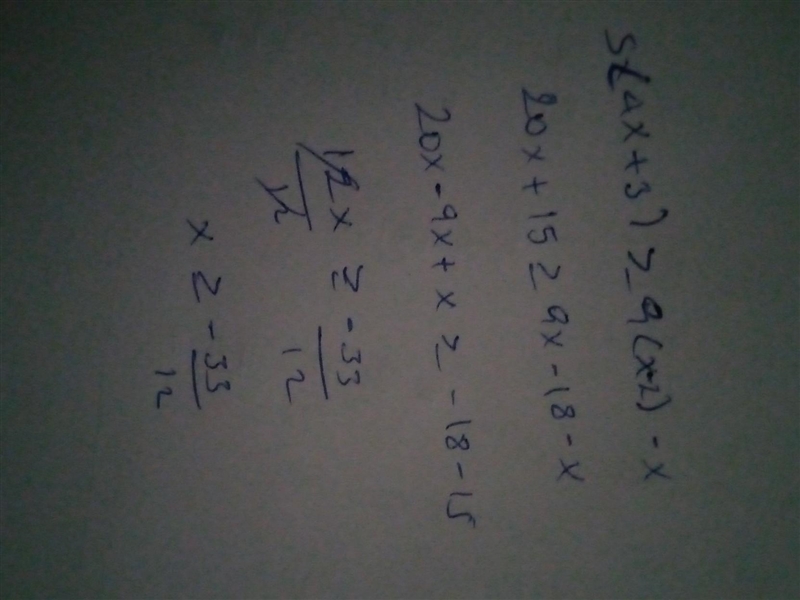 5(4x+3) ≥ 9(x-2) - x
20x + 15 ≥ 9x - 18 - x
20x - 9x + x ≥ - 18 - 15
12x/12 ≥ -33/12
x ≥ -33/12